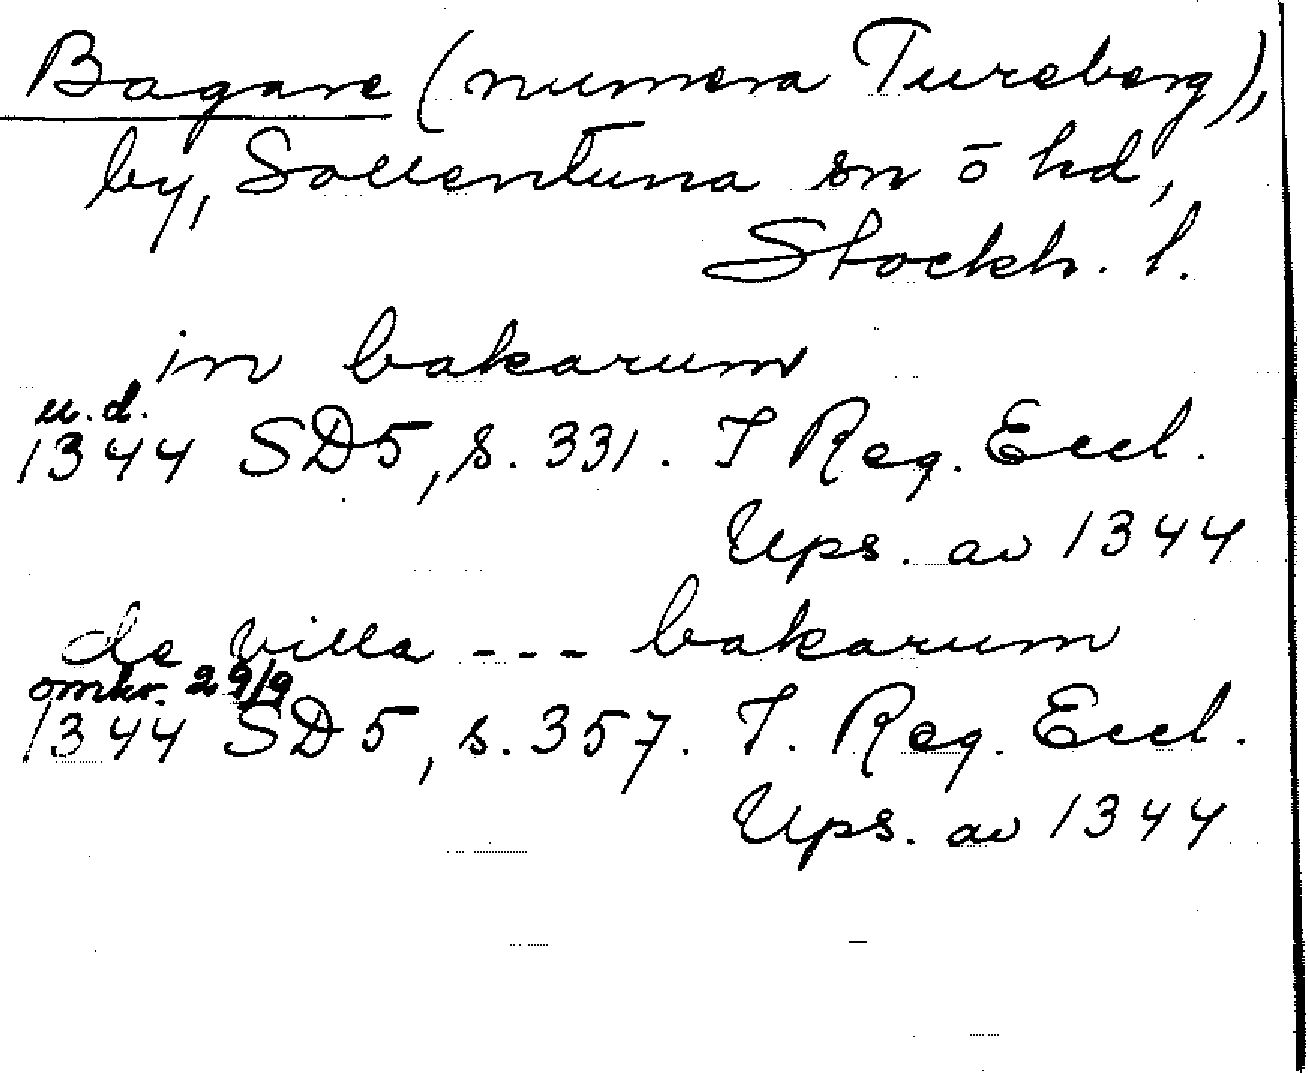 Bagare (numera Tureberg),
by, Sollentuna sn ō hd,
Stockh. l.
in bakarum
u. d.
1344 SD 5, s. 331. I Reg. Eccl.
Ups. av 1344
de villa --- bakarum
omkr. 29/9
1344 SD 5, s. 357. I. Reg. Eccl.
Ups. av 1344